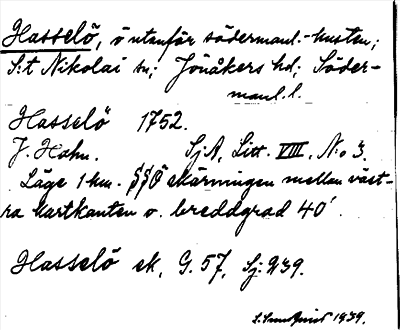 Hasselö, ö utanför södermanl.-kusten;
S:t Nikolai sn; Jönåkers hd; Söder-
manl. l.
Hasselö 1752.
J. Hahn. SjA, Litt. VIII, No 3.
Läge 1 km. SSÖ skärningen mellan väst-
ra kartkanten o. breddgrad 40'.
Hasselö ek, G. 57, Sj: 239.
1939.